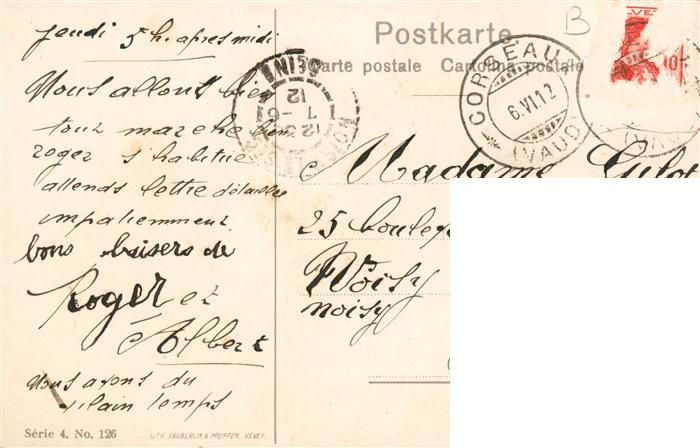 jeudi 5 h. apres midi
Nous allons bien
tout marche bien
roger s'habitue
attends lettre détaillée
impatiemment.
bons baisers de
Roger et
Albert
nous avons du
vilain temps
Série 4. No. 126
LITH. SÄUBERLIN & PFEIFFER, VEVEY.
Postkarte
Carte postale Cartolina postale
B
CORSEAUX
6.VI.12
(VAUD)
SEINE
12
7 -6
12 3
VE
10
(VAUD)
Madame Gilot
25 boulev
Noisy
noisy